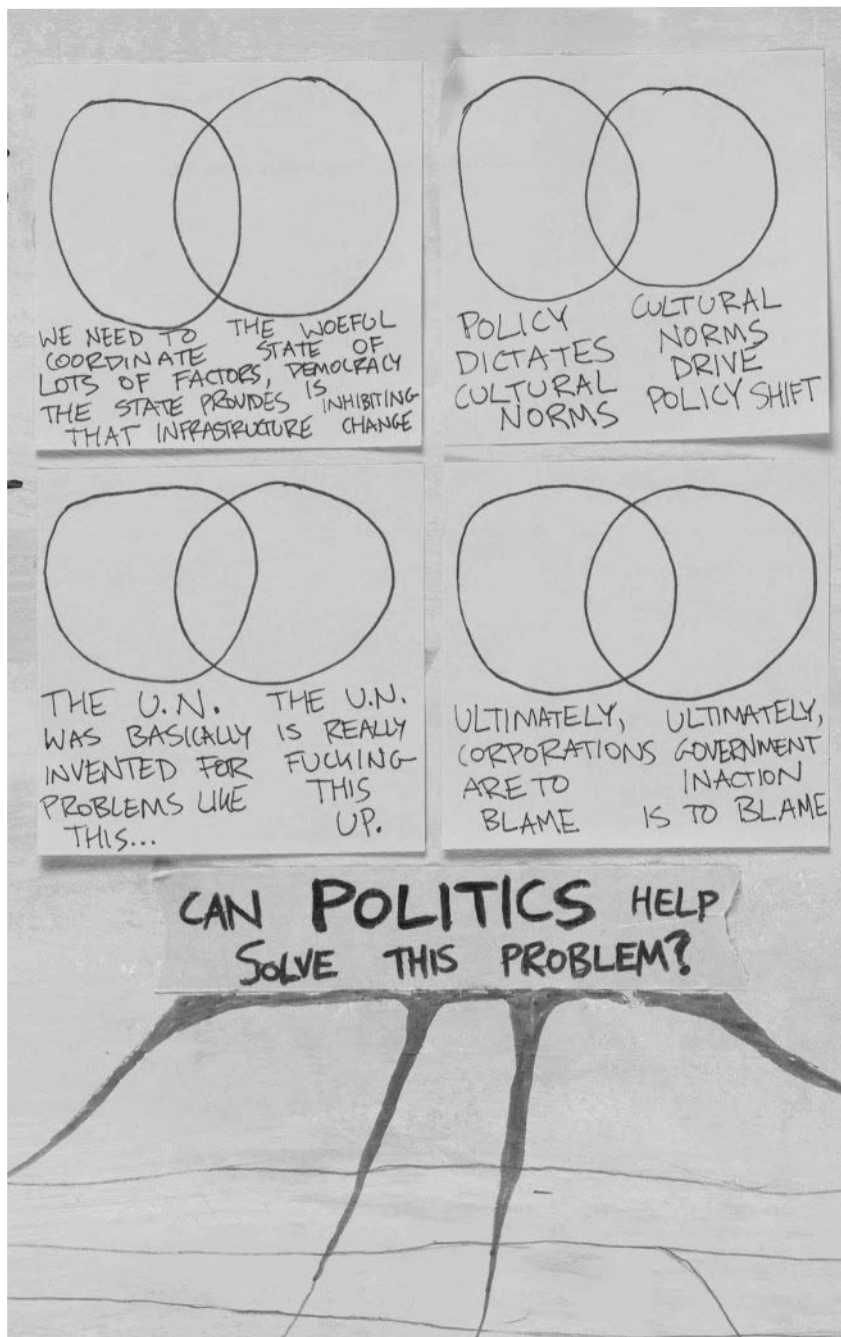 WE NEED TO
COORDINATE
LOTS OF FACTORS,
THE STATE PROVIDES
THAT INFRASTRUCTURE
THE WOEFUL
STATE OF
DEMOCRACY
IS
INHIBITING
CHANGE
POLICY
DICTATES
CULTURAL
NORMS
CULTURAL
NORMS
DRIVE
POLICY SHIFT
THE U.N.
WAS BASICALLY
INVENTED FOR
PROBLEMS LIKE
THIS...
THE U.N.
IS REALLY
FUCKING
THIS
UP.
ULTIMATELY,
CORPORATIONS
ARE TO
BLAME
ULTIMATELY,
GOVERNMENT
INACTION
IS TO BLAME
CAN POLITICS HELP
SOLVE THIS PROBLEM?